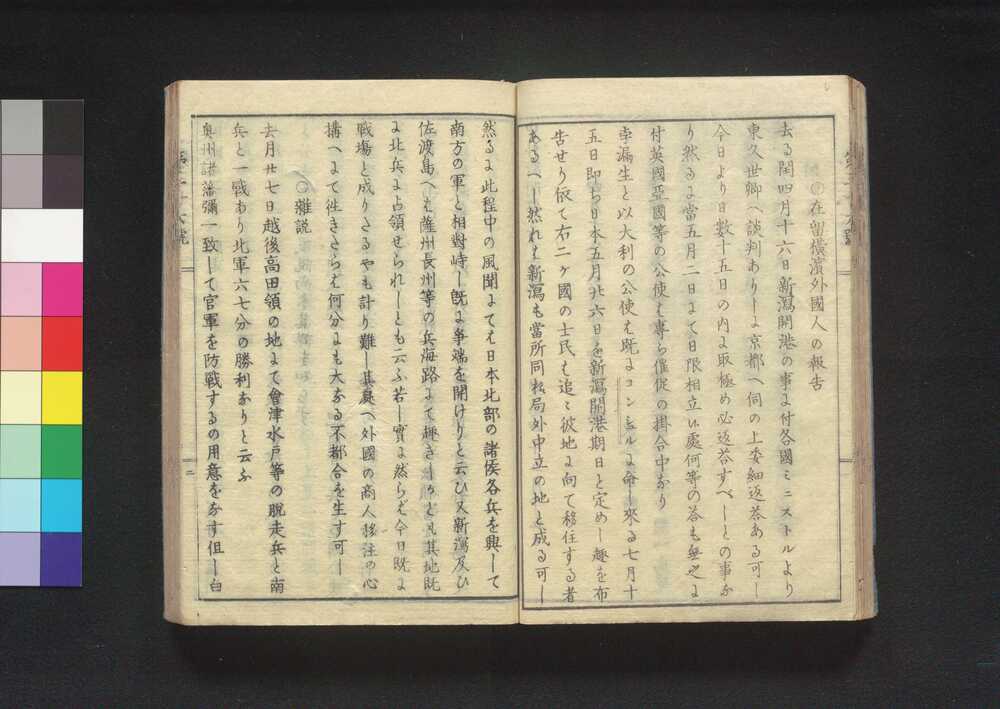 ○在留橫濱外國人の報告
去る閏四月十六日新瀉開港の事に付各國ミニストルより
東久世卿へ談判ありしに京都へ伺の上委細返荅ある可し
今日より日數十五日の内に取極め必返荅すべしとの事な
り然るに當五月二日にて日限相立候處何等の荅も無之に
付英國亞國等の公使は專ら催促の掛合中なり
孛漏生と以大利の公使は既にコンシュルに命し來る七月十
五日即ち日本五月廿六日を新瀉開港期日と定めし趣を布
告せり依て右二ケ國の士民は追々彼地に向て移住する者
あるへし然れは新瀉も當所同樣局外中立の地と成る可し
然るに此程中の風聞にては日本北部の諸侯各兵を興して
南方の軍と相對峙し既に爭端を開けりと云ひ又新瀉及ひ
佐渡島へは薩州長州等の兵海路にて趣きしかとも其地既
に北兵に占領せられしとも云ふ若し實に然らは今日既に
戰塲と成りさるやも計り難し其處へ外國の商人移注の心
搆へにて徃きさらは何分にも大なる不都合を生す可し
○雜説
去月廿七日越後高田領の地にて會津水戸等の脱走兵と南
兵と一戰あり北軍六七分の勝利なりと云ふ
奥州諸藩彌一致して官軍を防戰するの用意をなす但し白